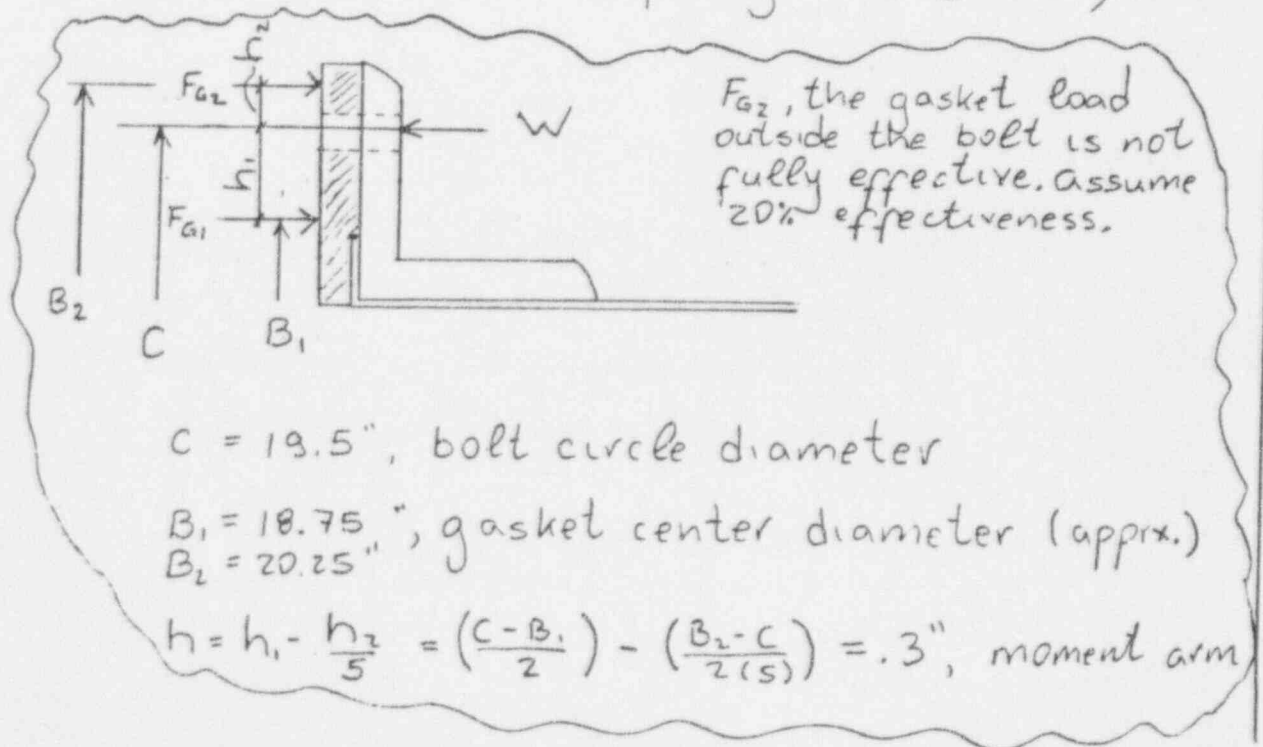 h₂
F_G2
W
F_G2, the gasket load
outside the bolt is not
fully effective. Assume
20% effectiveness.
h₁
F_G1
B₂
C
B₁
C = 19.5", bolt circle diameter
B₁ = 18.75", gasket center diameter (apprx.)
B₂ = 20.25"
h = h₁ - h₂/5 = ((C - B₁)/2) - ((B₂ - C)/2(5)) = .3", moment arm